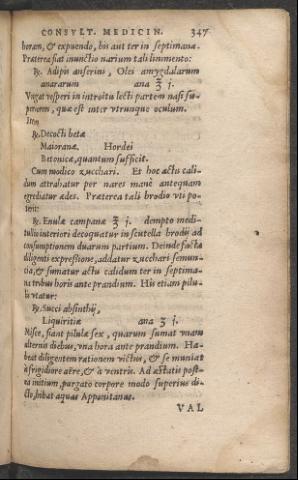 CONSVLT. MEDICIN. 347
horam, & expuendo, bis aut ter in septimana.
Præterea fiat inunctio narium tali linimento:
℞. Adipis anserini, Olei amygdalarum
amararum ana ʒ j.
Vngat vesperi in introitu lecti partem nasi su-
premam, quæ est inter vtrunque oculum.
Item
℞. Decocti betæ
Maioranæ Hordei
Betonicæ, quantum sufficit.
Cum modico zucchari. Et hoc actis cali-
dum attrahatur per nares manè antequam
egrediatur ædes. Præterea tali brodio vti po-
terit:
℞. Enulæ campanæ ʒ j. dempto medi-
tullio interiori decoquatur in scutella brodij ad
consumptionem duarum partium. Deinde facta
diligenti expressione, addatur zucchari semun-
cia, & sumatur actu calidum ter in septima-
na tribus horis ante prandium. His etiam pilu-
lis vtatur:
℞. Succi absinthij,
Liquiritiæ ana ʒ j.
Misce, fiant pilulæ sex, quarum sumat vnam
alternis diebus, vna hora ante prandium. Ha-
beat diligentem rationem victus, & se muniat
à frigidiore aëre, & à ventis. Ad æstatis post-
ea initium, purgato corpore modo superius di-
cto, bibat aquas Apponitanas.
VAL